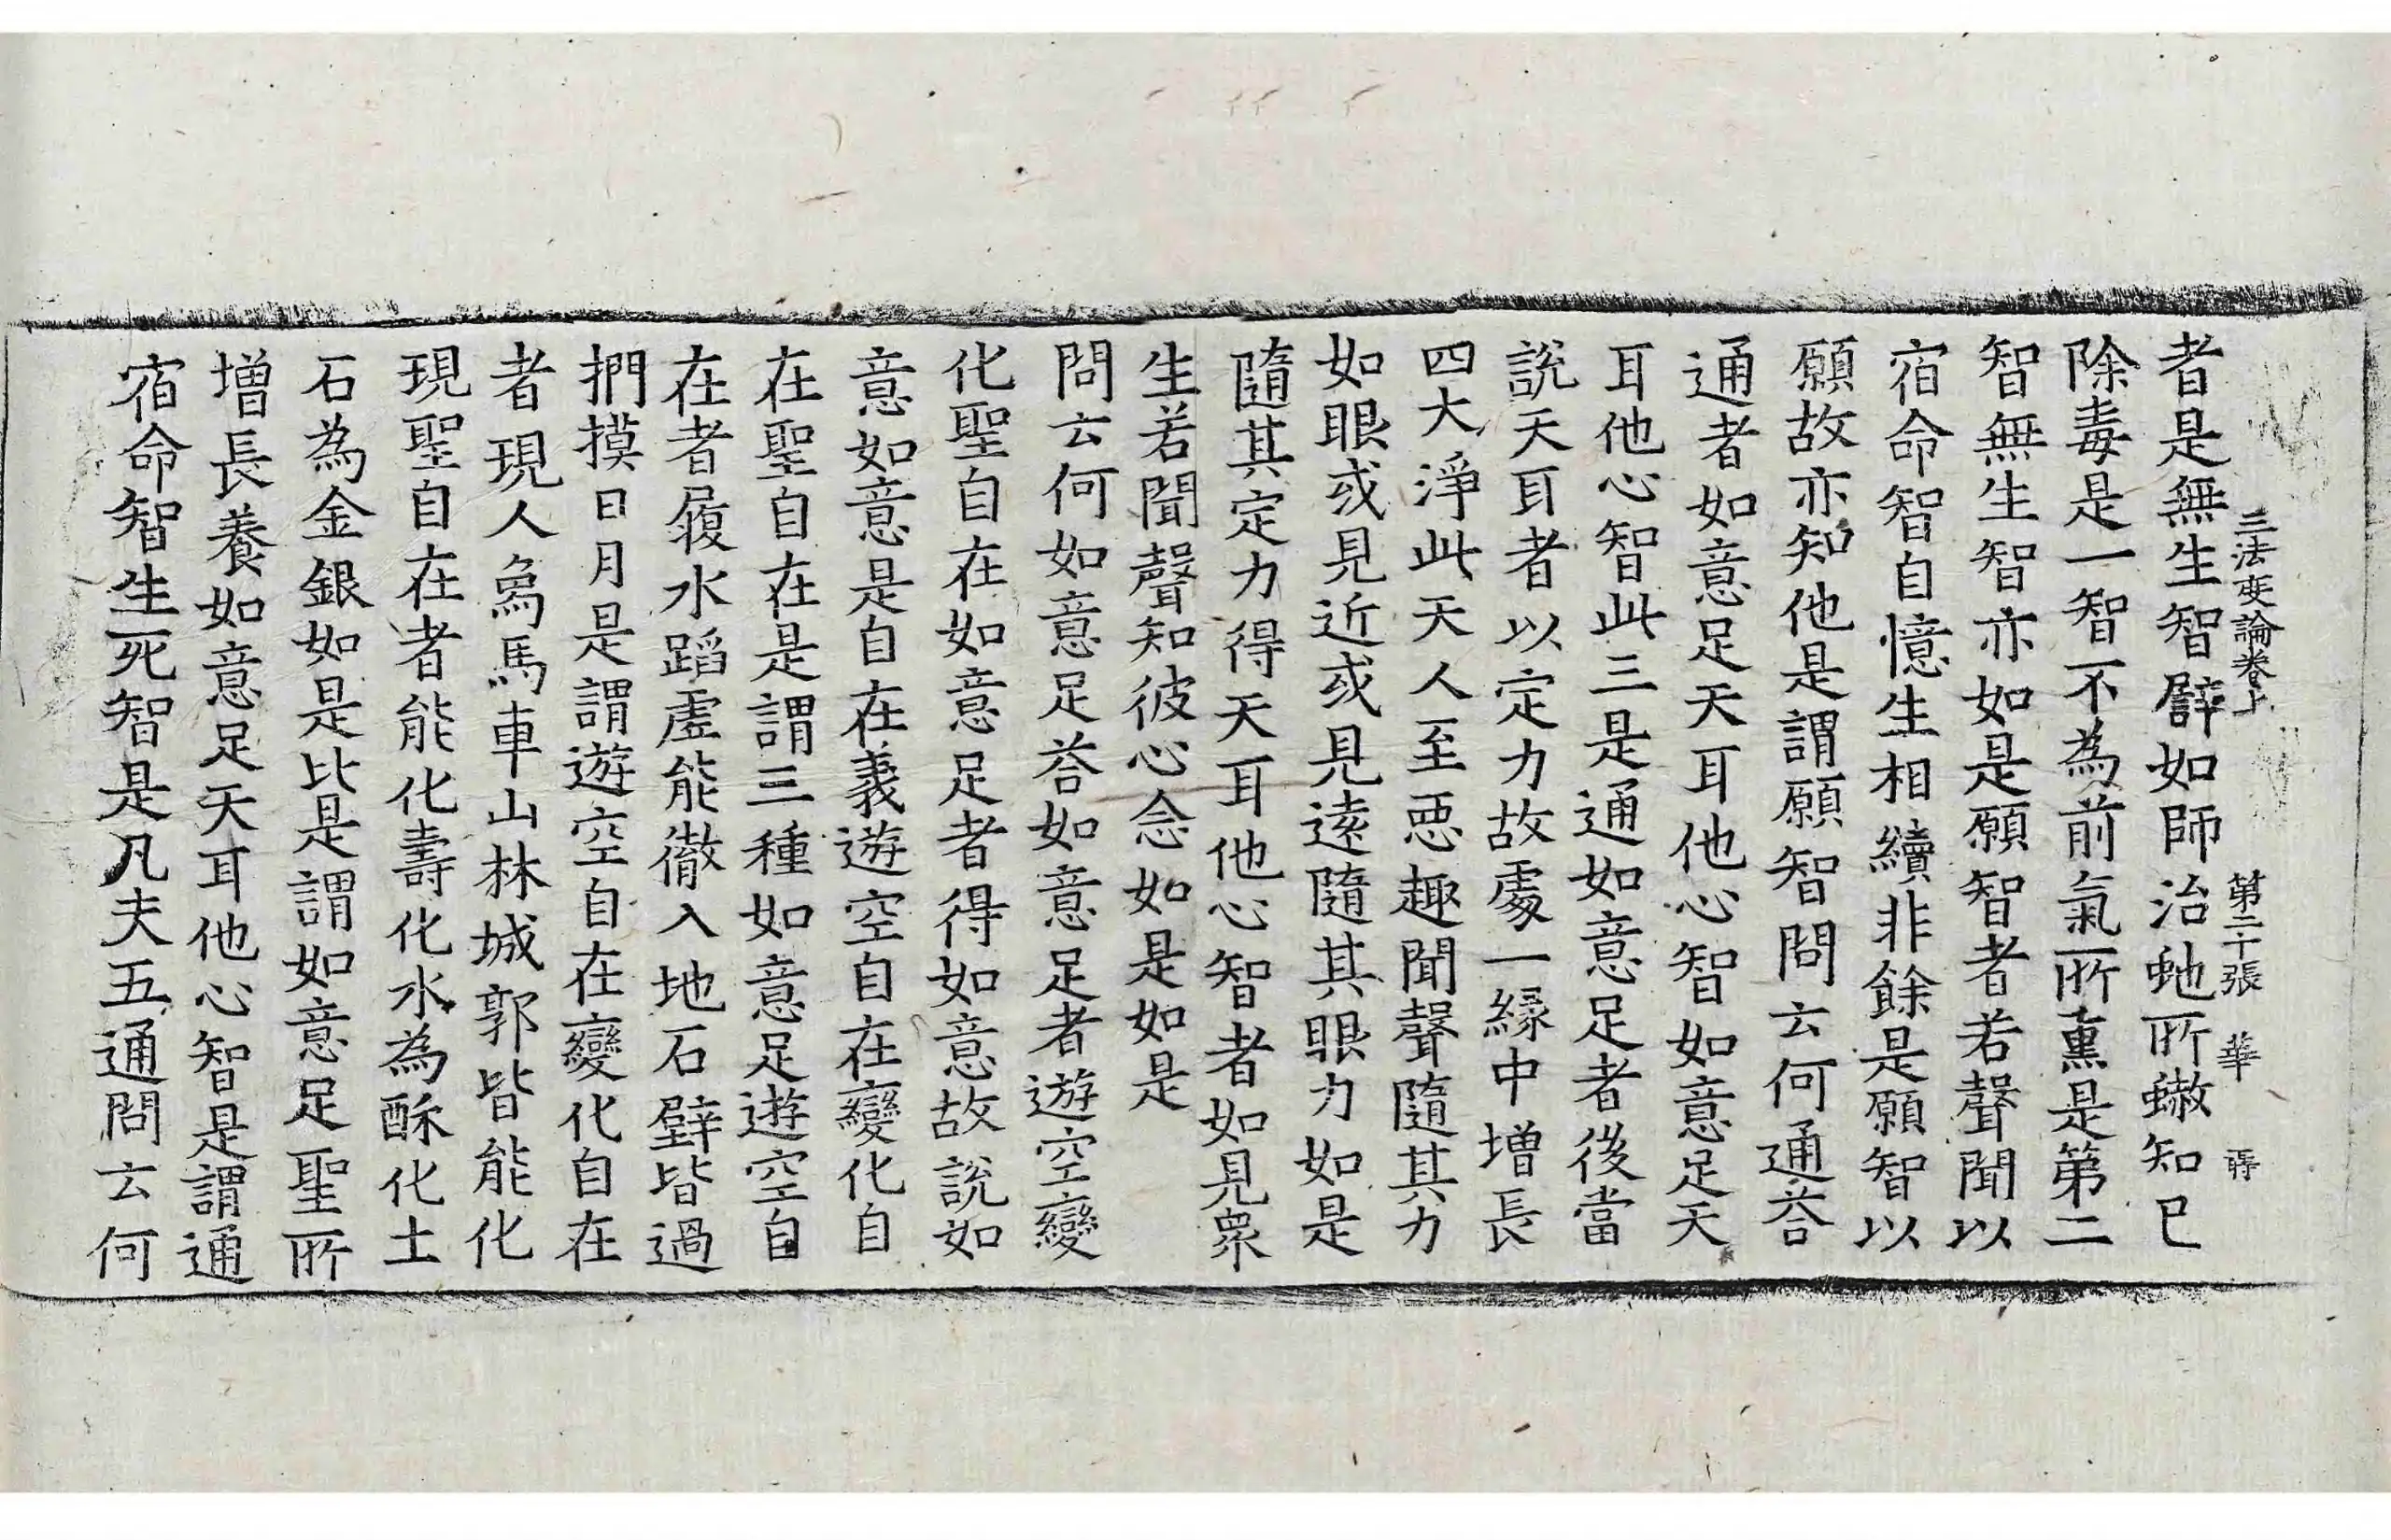 三法度論卷上 第二十張 華
者是無生智譬如師治虵所螫知已
除毒是一智不為前氣所熏是第二
智無生智亦如是願智者若聲聞以
宿命智自憶生相續非餘是願智以
願故亦知他是謂願智問云何通荅
通者如意足天耳他心智如意足天
耳他心智此三是通如意足者後當
說天耳者以定力故處一緣中增長
四大淨此天人至惡趣聞聲隨其力
如眼或見近或見遠隨其眼力如是
隨其定力得天耳他心智者如見衆
生若聞聲知彼心念如是如是
問云何如意足荅如意足者遊空變
化聖自在如意足者得如意故說如
意如意是自在義遊空自在變化自
在聖自在是謂三種如意足遊空自
在者履水蹈虛能徹入地石壁皆過
捫摸日月是謂遊空自在變化自在
者現人象馬車山林城郭皆能化
現聖自在者能化壽化水為酥化土
石為金銀如是比是謂如意足聖所
增長養如意足天耳他心智是謂通
宿命智生死智是凡夫五通問云何